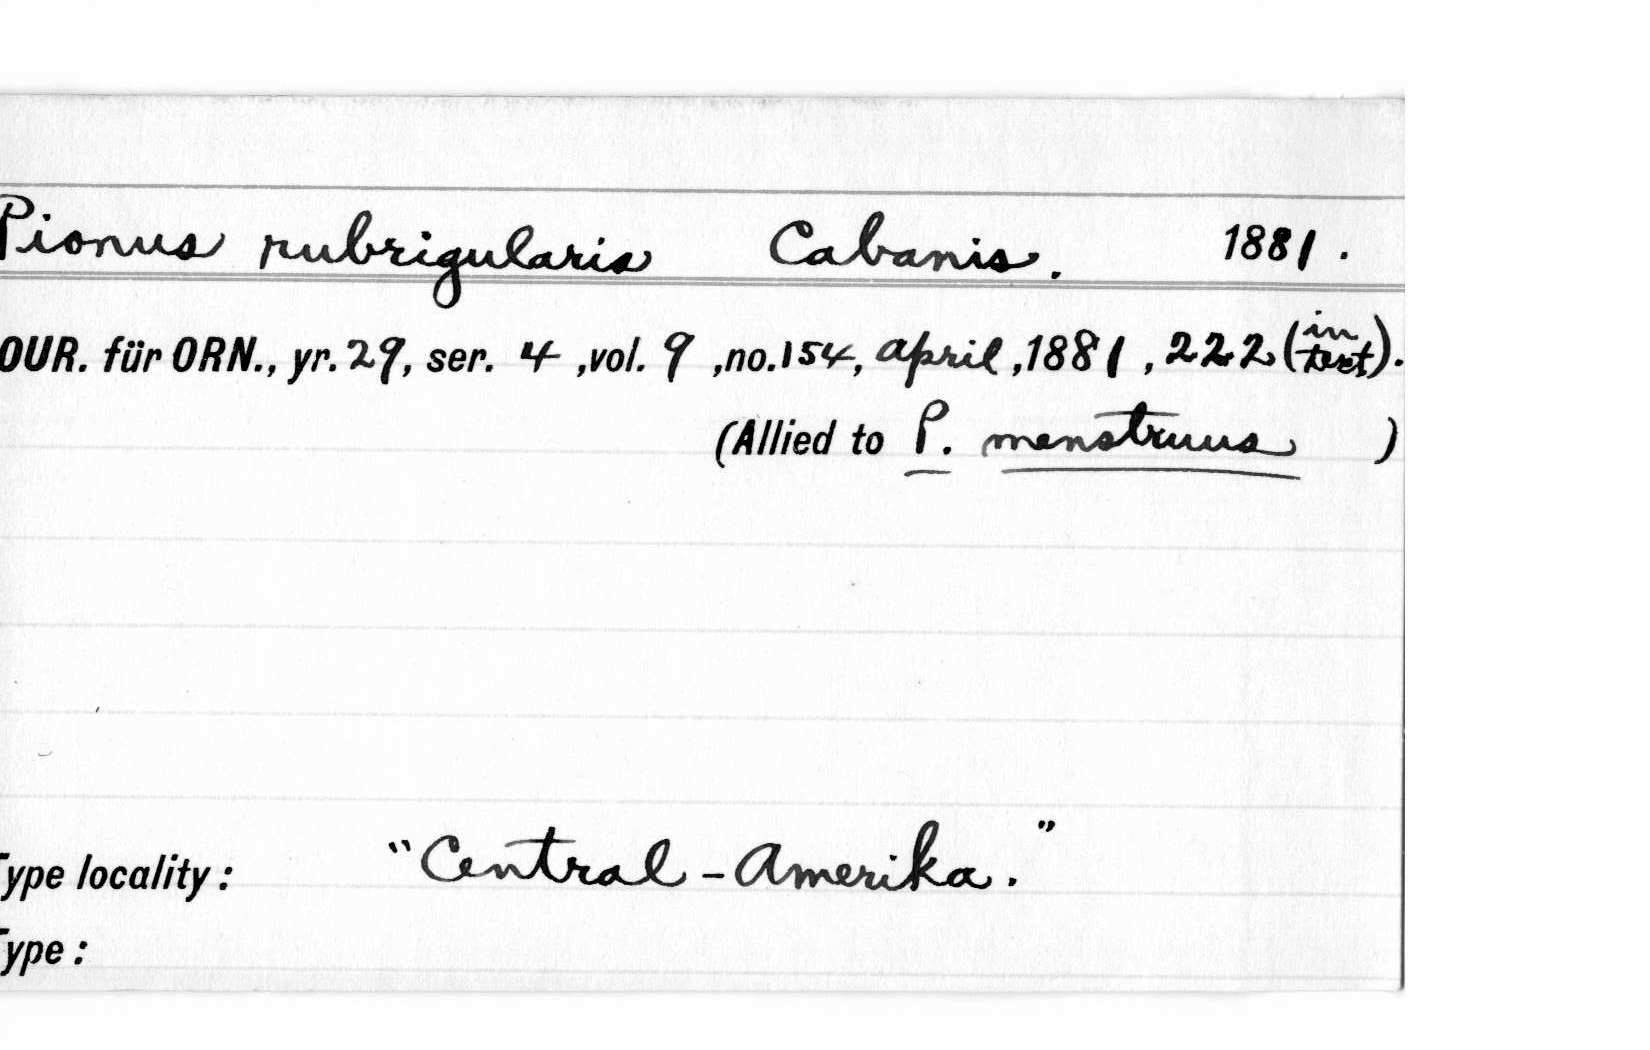 Pionus rubrigularis Cabanis. 1881.
OUR. für ORN., yr. 29, ser. 4 ,vol. 9 ,no. 154, april ,1881 , 222 (in text).
(Allied to P. menstruus )
"Central-Amerika."
Type locality :
Type :